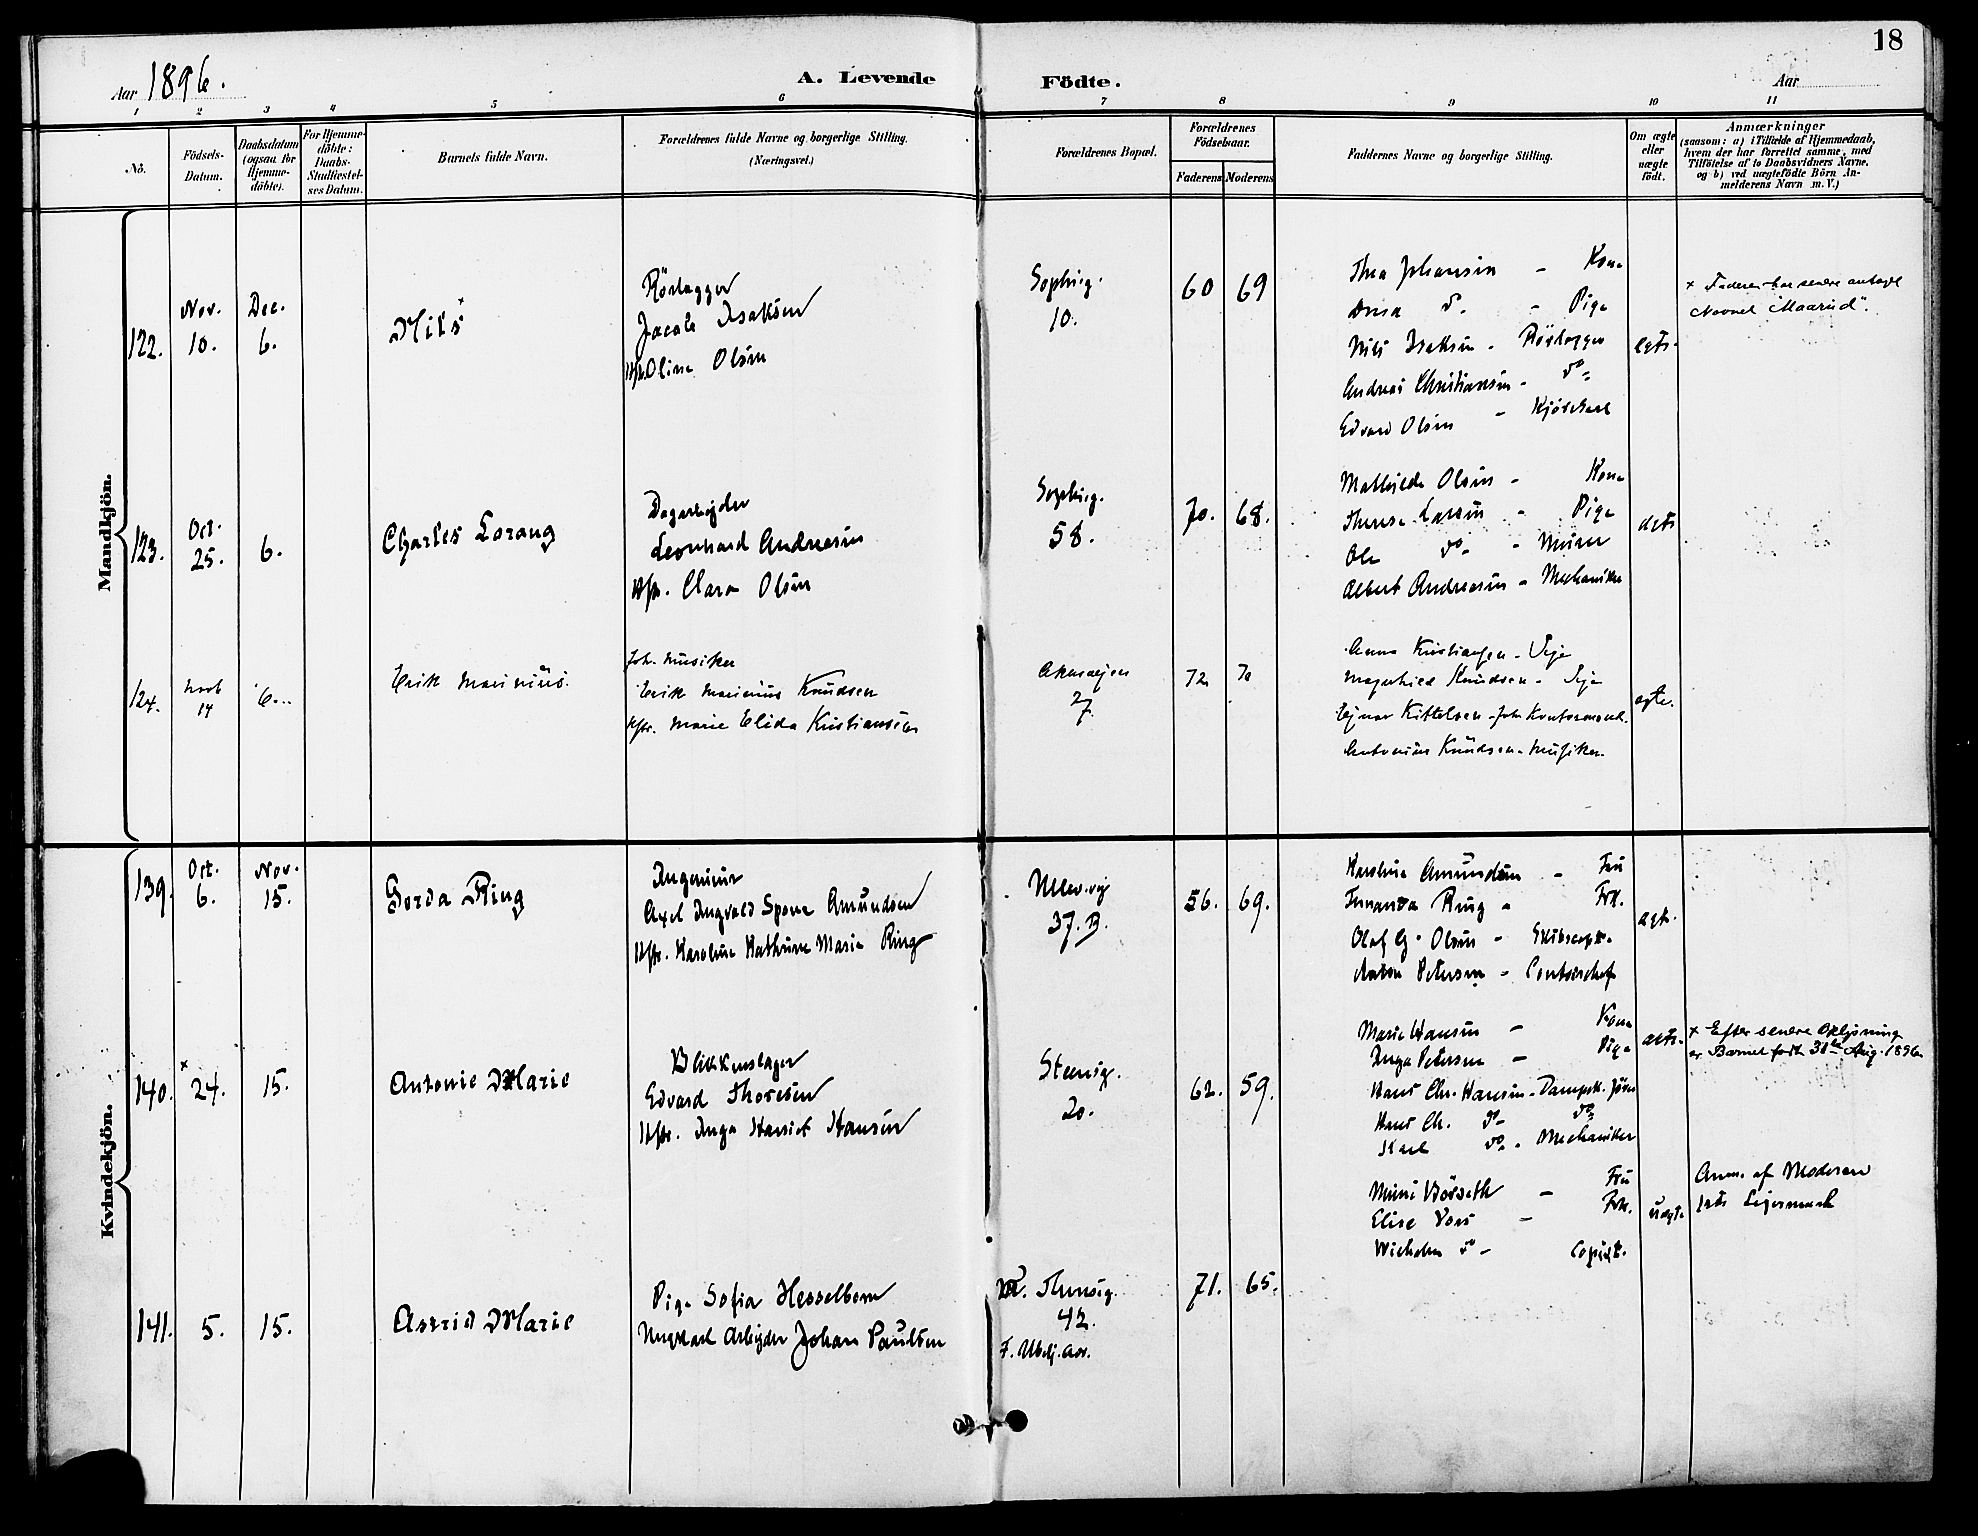 18
Aar 1896.
A. Levende Födte.
Aar
1 2 3 4 5 6 7 8 9 10 11
No.
Födsels-Datum.
Daabsdatum (ogsaa for Hjemme-döbte).
For Hjemme-döbte: Daabs-Stadfæstel-ses Datum.
Barnets fulde Navn.
Forældrenes fulde Navne og borgerlige Stilling. (Næringsvei.)
Forældrenes Bopæl.
Forældrenes Födselsaar.
Faderens Moderens
Faddernes Navne og borgerlige Stilling.
Om ægte eller uægte födt.
Anmærkninger
(saasom: a) i Tilfælde af Hjemmedaab,
hvem der har forrettet samme, med
Tilföielse af to Daabsvidners Navne.
og b) ved uægtefödte Börn An-
melderens Navn m. V.)
Mandkjön.
122.
Nov. 10.
Dec. 6.
Nils ×
Rörlægger
Jacob Isaksen
Hstr. Oline Olsen
Sophieg.
10.
60 69
Thea Johansen - Kone
do. - Pige
Nils Isaksen - Rörlægger
Andreas Christiansen - do
Edvard Olsen -
egte.
× Faderen har senere antaget
Navnet "Maarud".
123.
Oct. 25.
6.
Charles Lorang
Dagarbejder
Leonhard Andresen
Hstr. Clara Olsen
Sophieg.
58.
70. 68.
Mathilde Olsen - Kone
Therese Larsen - Pige
Ole do - Murer
Albert Andresen - Mechaniker
egte
124.
Novb 14
6.
Erik Marinius.
Joh. Musiker
Erik Marinius Knudsen
Hstr. Marie Elida Kristiansen
Akersvejen
27.
72 70
Anna Kristiansen - Pige
Magnhild Knudsen - Pige
Ejnar Kittelsen -
Antonius Knudsen - Musiker.
egte.
Kvindekjön.
139.
Oct. 6.
Nov. 15.
Gerda Ring
Ingeniør
Axel Ingvald Amundsen
Hstr. Karoline Kathrine Marie Ring
Ullev.vej
37. B.
56. 69.
Karoline Amundsen - Fru
Fernanda Ring - Frk.
Olaf G. Olsen -
Anton Petersen - Contorchef
egte.
140.
× 24.
15.
Antonie Marie
Blikkenslager
Edvard Thoresen
Hstr. Inga Harriet Hansen
Steensg.
20.
62. 59.
Marie Hansen - Kone
Inga Petersen - Pige
Hans Chr. Hansen -
Hans Ch. do - do
Karl do - Mechaniker
egte.
× Efter senere Oplysning
er Barnet født 31te Aug. 1896.
141.
5.
15.
Astrid Marie
Pige Sofia Hesselbom
Ungkarl Arbejder Johan Paulsen
M. Theresesg.
42.
71. 65.
Mimi - Fru
Elise Voss - Frk.
Wilhelm do - Copist.
uegte
Anm. af Moderen
1ste Lejermaal